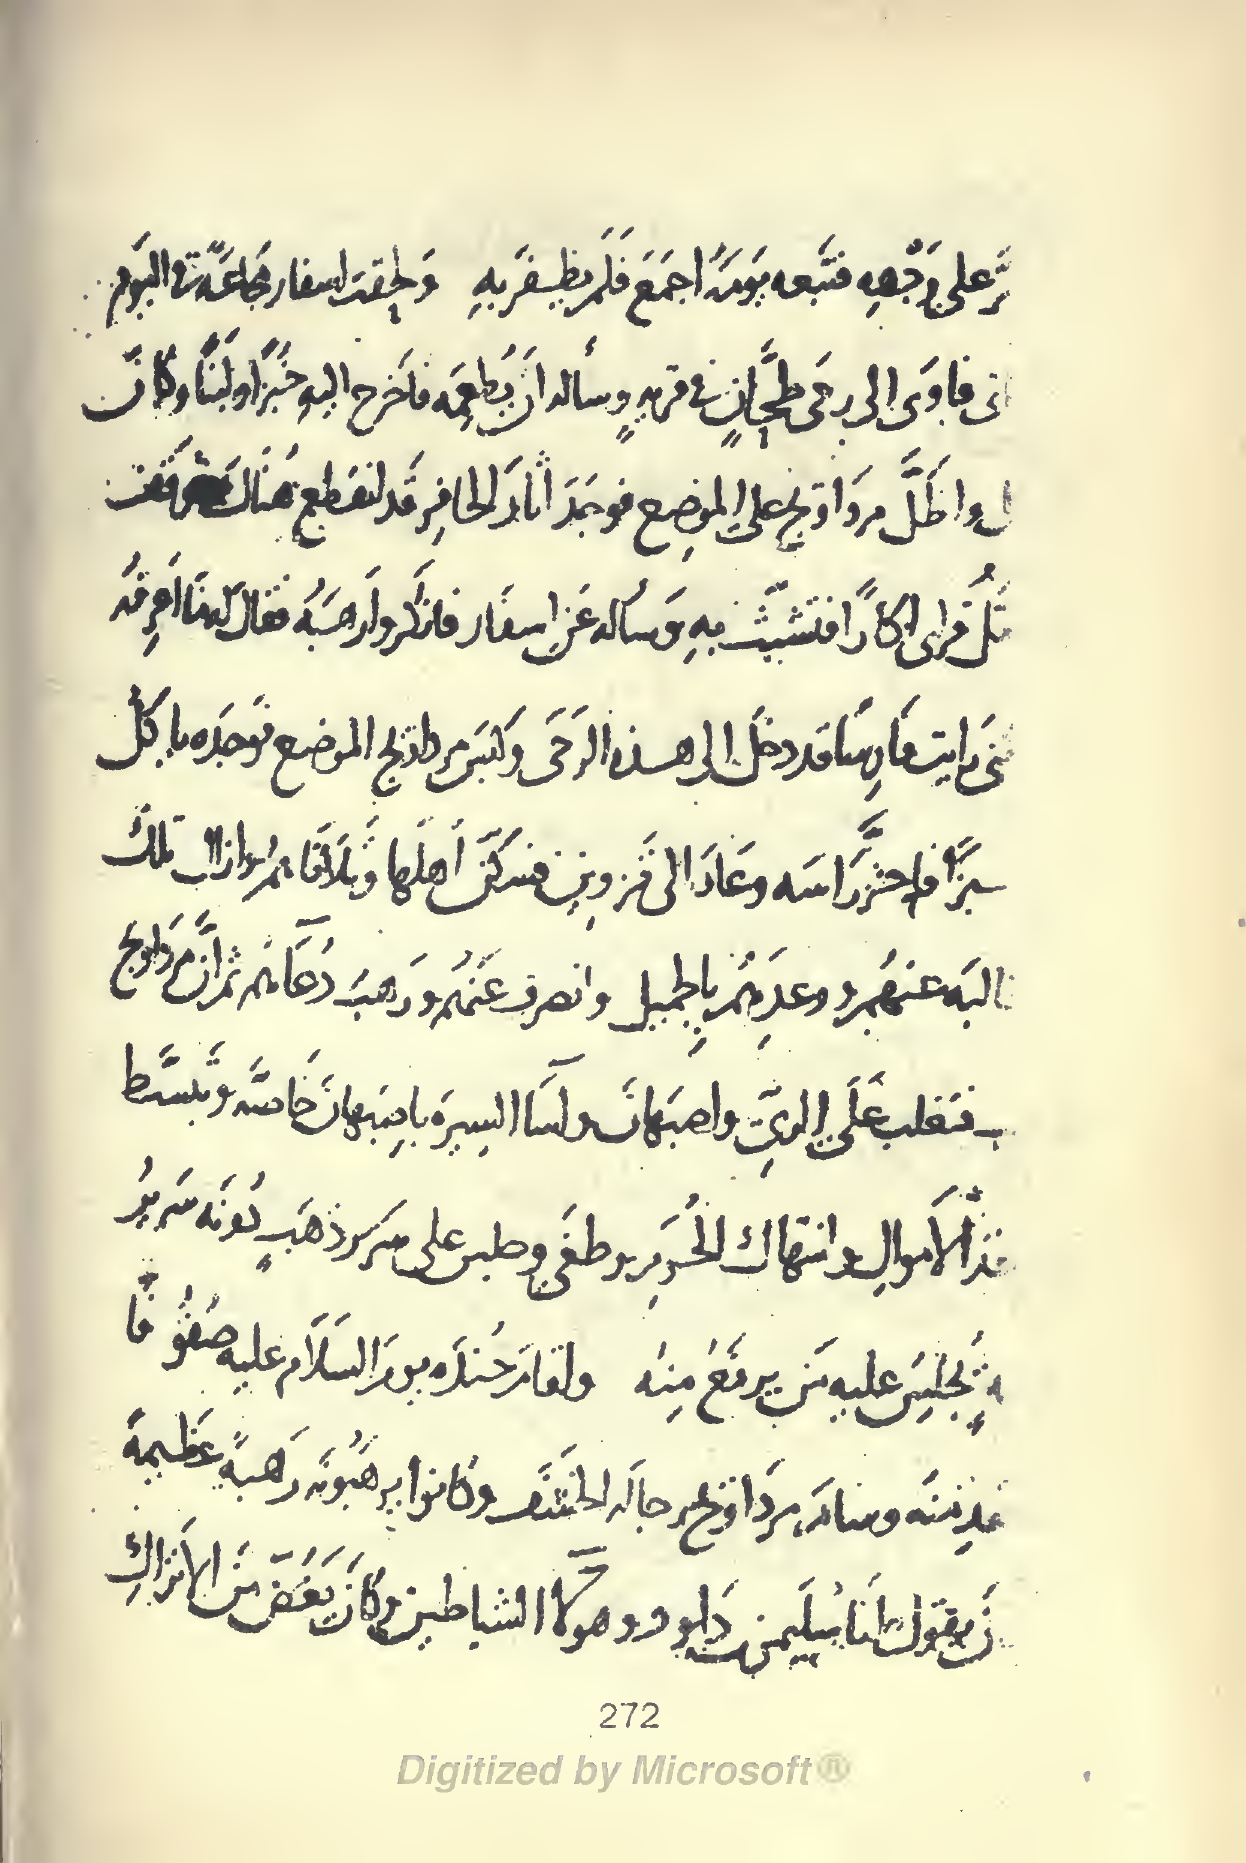 على وجهه فتبعه يومه اجمع فلم يظفر به ولحقت اسفار مجاعة في اليوم
فاوى الى رحى طحان في قرية وساله ان يطعمه فاخرج اليه خبزا ولبنا وكان
واظل مرداويج على الموضع فوجد اثار الحافر قد انقطع هناك فوقف
فراى اكارا فتشبث به وساله عن اسفار فانكر وارهبه فقال له ما اعرفه
رايت فارسا قد دخل الى هذه الرحى وكبس مرداويج الموضع فوجده ياكل
خبزا فاحتز راسه وعاد الى قزوين فسكن اهلها وتلافاهم وازال تلك
عنهم ووعدهم بالجميل وانصرف عنهم ورهب دعاهم ثم ان مرداويج
فتغلب على الري واصبهان واسا السيرة باصبهان خاصة وتبسط
الاموال وانتهاك الحرم وطغى وجلس على سرير ذهب دونه سرير
يجلس عليه من يرفع منه واقام جنده يوم السلام عليه صفوفا
وسام مرداويج رجاله الخسف وكانوا يرهبونه رهبة عظيمة
يقول انا سليمن بن داوود وهولا الشياطين وكان يغض من الاتراك
272
Digitized by Microsoft®